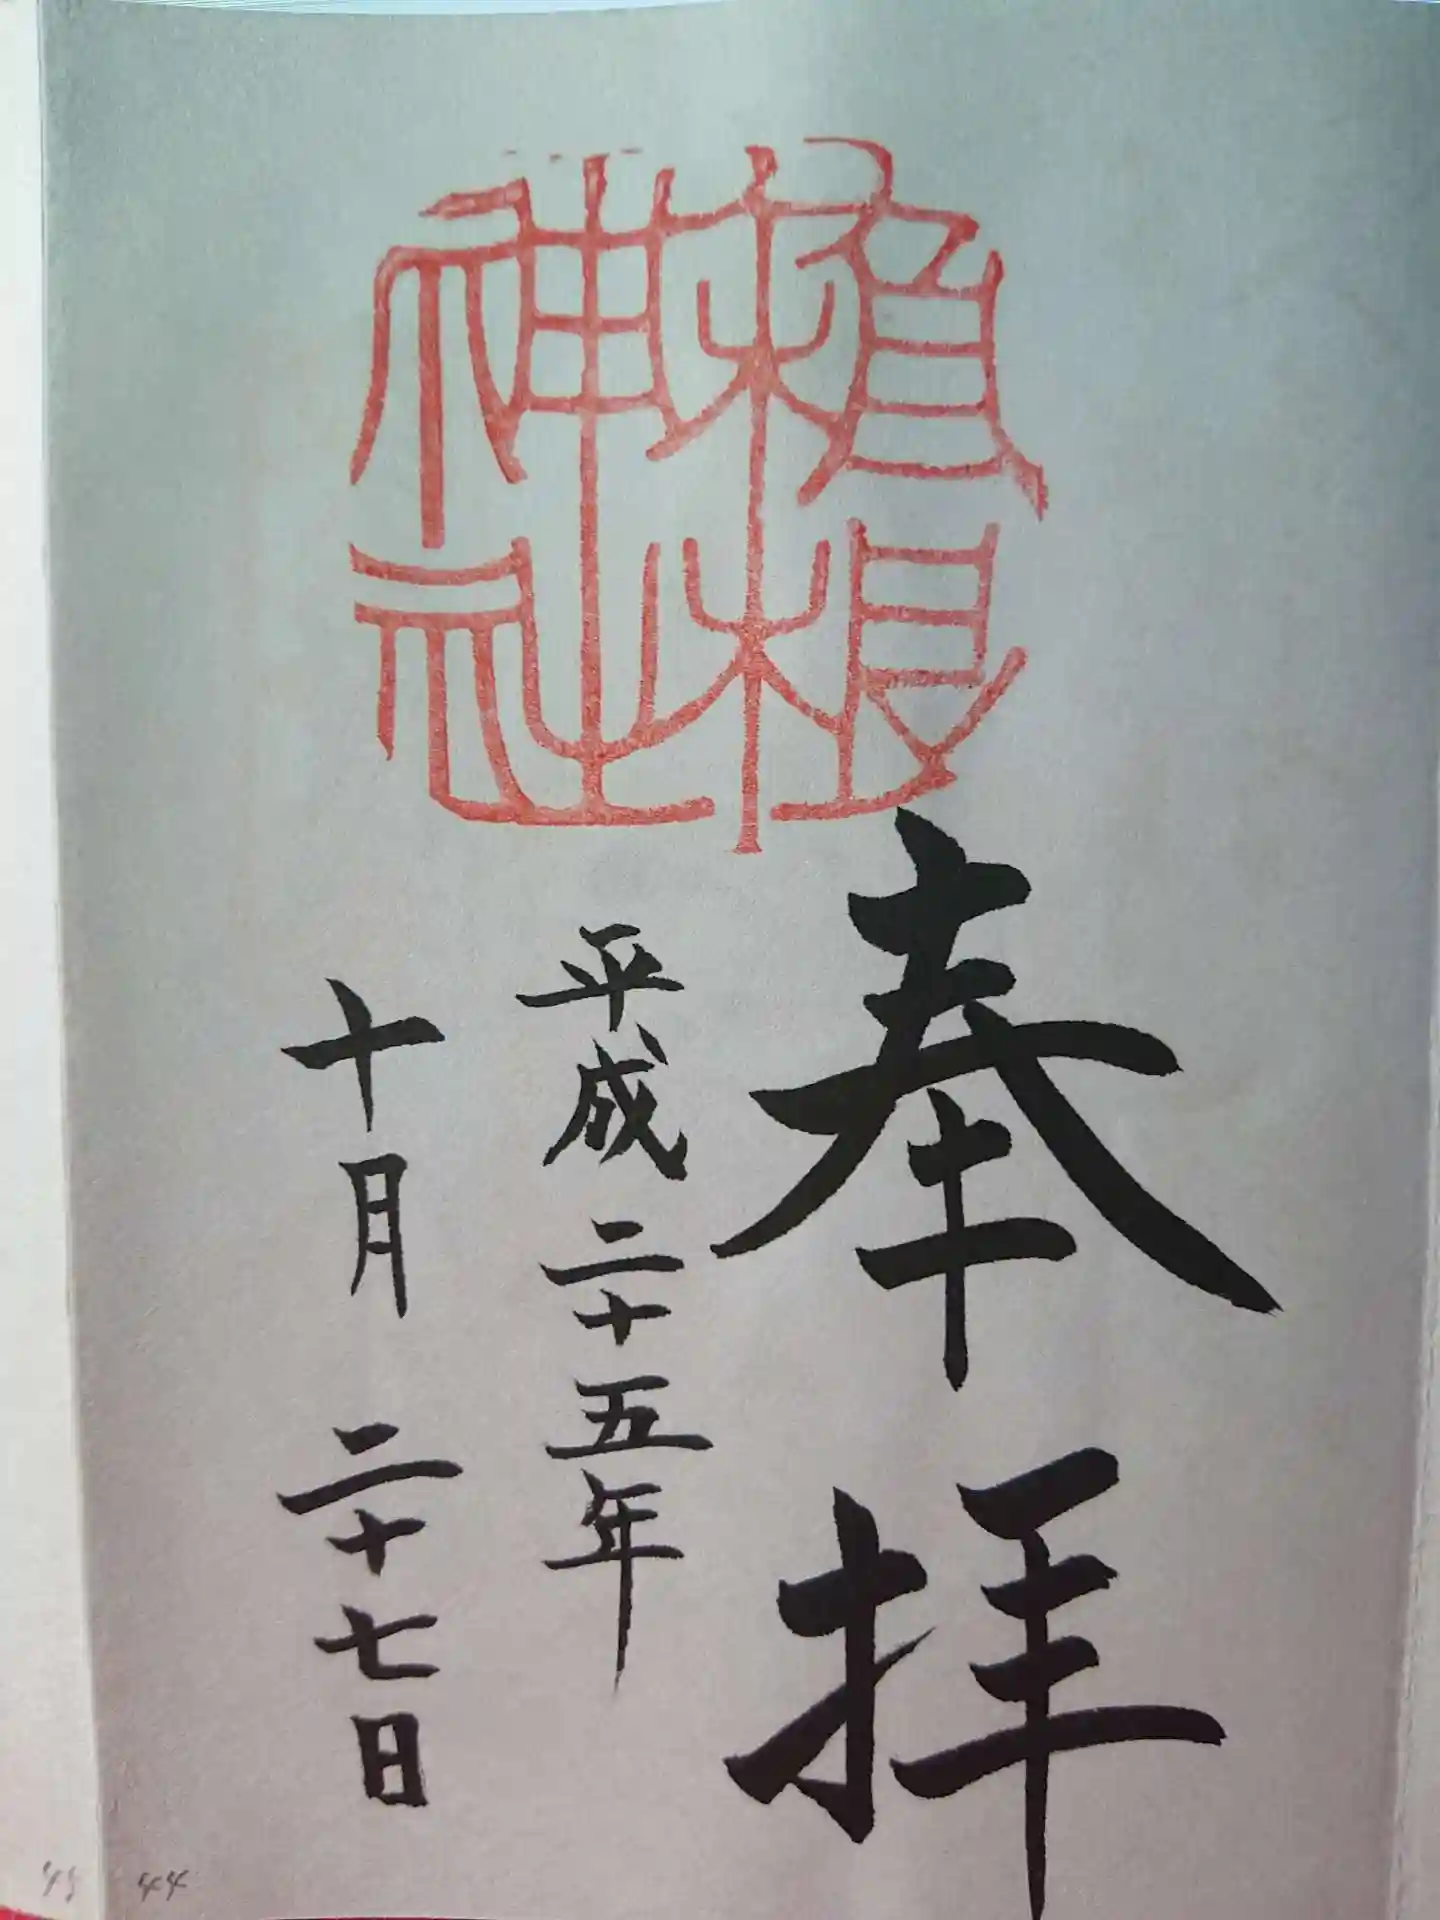 神社
奉拝
平成二十五年
十月二十七日
44